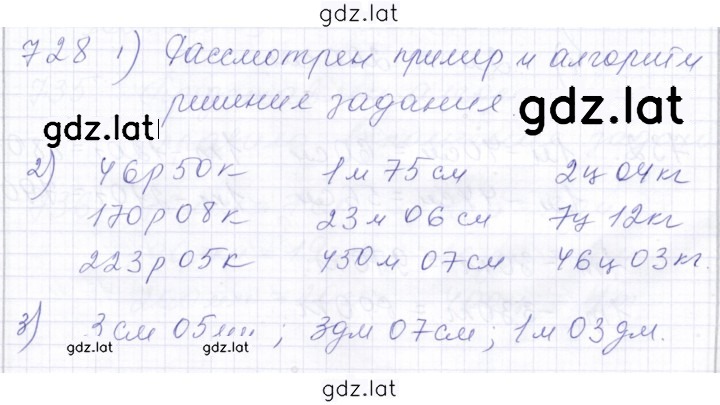 gdz.lat
728 1) Рассмотрен пример и алгоритм
решения задания gdz.lat
gdz.lat
2) 46р 50к 1м 75см 2ц 04кг
170р 08к 23м 06см 7ц 12кг
223р 05к 450м 07см 46ц 03кг.
3) 3см 05мм; 3дм 07см; 1м 03дм.
gdz.lat gdz.lat
gdz.lat